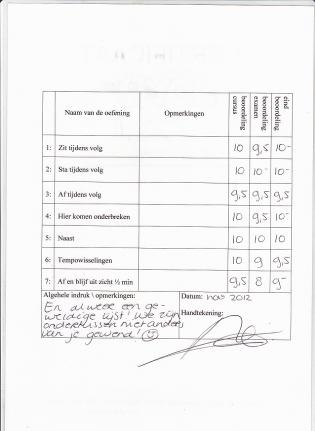 Naam van de oefening Opmerkingen beoordeling cursus beoordeling examen eind beoordeling
1: Zit tijdens volg 10 9,5 10-
2: Sta tijdens volg 10 10- 10-
3: Af tijdens volg 9,5 9,5 9,5
4: Hier komen onderbreken 10 9,5 10-
5: Naast 10 10 10
6: Tempowisselingen 10 9 9,5
7: Af en blijf uit zicht ½ min 9,5 8 9-
Algehele indruk \ opmerkingen: Datum: nov 2012
En alweer een ge-
weldige lijst! We zijn Handtekening:
ondertussen niet anders
van je gewend! ☺